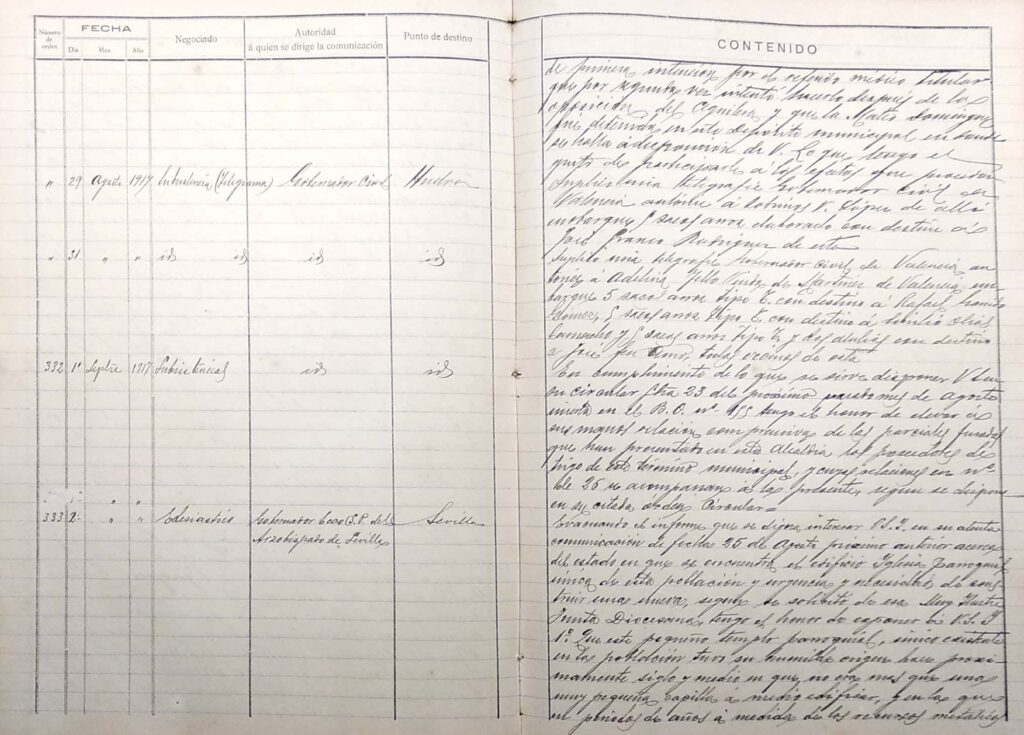 Número de orden
FECHA
Dia Mes Año
Negociado
Autoridad
á quien se dirige la comunicación
Punto de destino
" 29 Agosto 1917 (telegrama) Gobernador Civil Huelva
" 31 " " id id id id
332 1º Septre 1917 Subsistencias id id
333 2 " " Eclesiastico Gobernador Ecco (S.P. del Sevilla
Arzobispado de Sevilla
CONTENIDO
de primera intencion por el referido medico titular
que por segunda vez intentó hacerlo despues de la
oposicion del Aguilera y que la Mateo Dominguez
fué detenida en este deposito municipal en donde
se halla á disposicion de V. Lo que tengo el
gusto de participarle á los efectos que procedan
Suplico a V.S. telegrafie Gobernador Civil de
Valencia autorice á V. López de allí
embarque 5 sacos arroz elaborado con destino á
José Franco Rodriguez de esta
Suplico telegrafie Gobernador Civil de Valencia au
torice á Adelina Viuda de Martinez de Valencia em
barque 5 sacos arroz tipo C. con destino á Rafael
Gómez, 5 sacos arroz tipo C. con destino á Emilio
Camacho y 5 sacos arroz tipo C. y dos con destino
a José todos vecinos de esta
En cumplimiento de lo que se sirve disponer V.S. en
su circular fha 23 del proximo mes de Agosto
inserta en el B.O. nº 155 tengo el honor de elevar á
sus manos relación comprensiva de las parciales juradas
que han presentado en esta Alcaldia los poseedores de
trigo de este término municipal, y cuyas relaciones en nº
de 26 se acompañan á la presente, segun se dispone
en su citada órden Circular=
Evacuando el informe que se digna interesar V.S.I. en su atenta
comunicación de fecha 25 de Agosto próximo anterior acerca
del estado en que se encuentra el edificio Iglesia parroquial
unica de esta población y urgencia y necesidad de cons
truir una nueva, segun se solicitó de esa Muy Ilustre
Junta Diocesana, tengo el honor de exponer á V.S.I.
1º Que este pequeño templo parroquial, único existente
en la población tuvo su humilde origen hace proxi
mamente siglo y medio en que no era mas que una
muy pequeña capilla á medio edificar, y en la que
en periodos de años á medida de los recursos metalicos